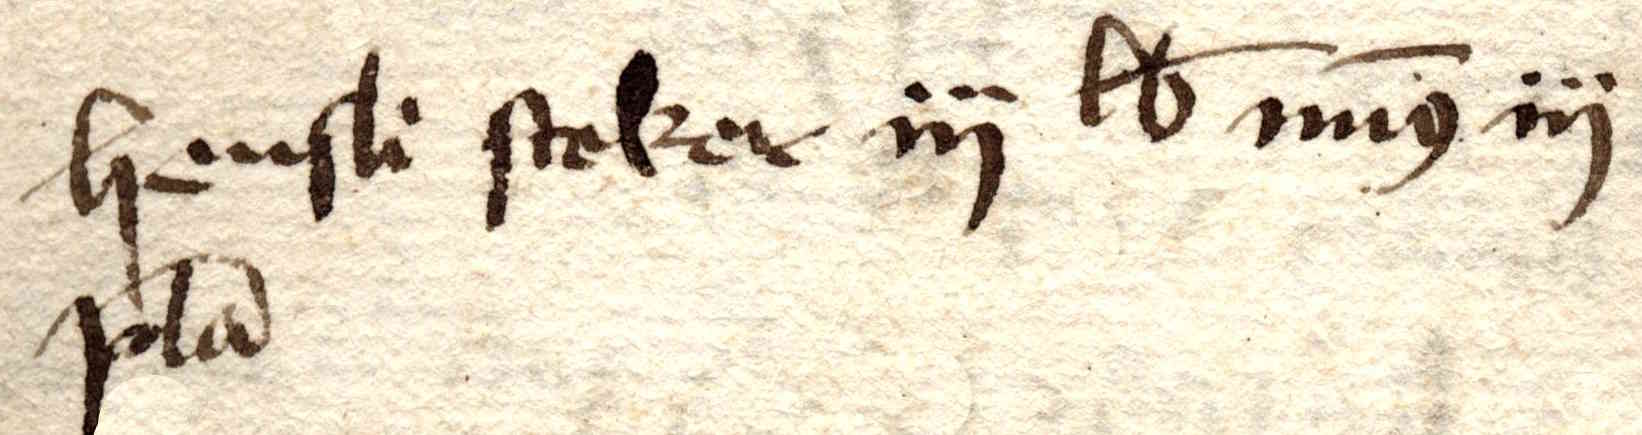 Hensli steker iij lb min9 iij
pla